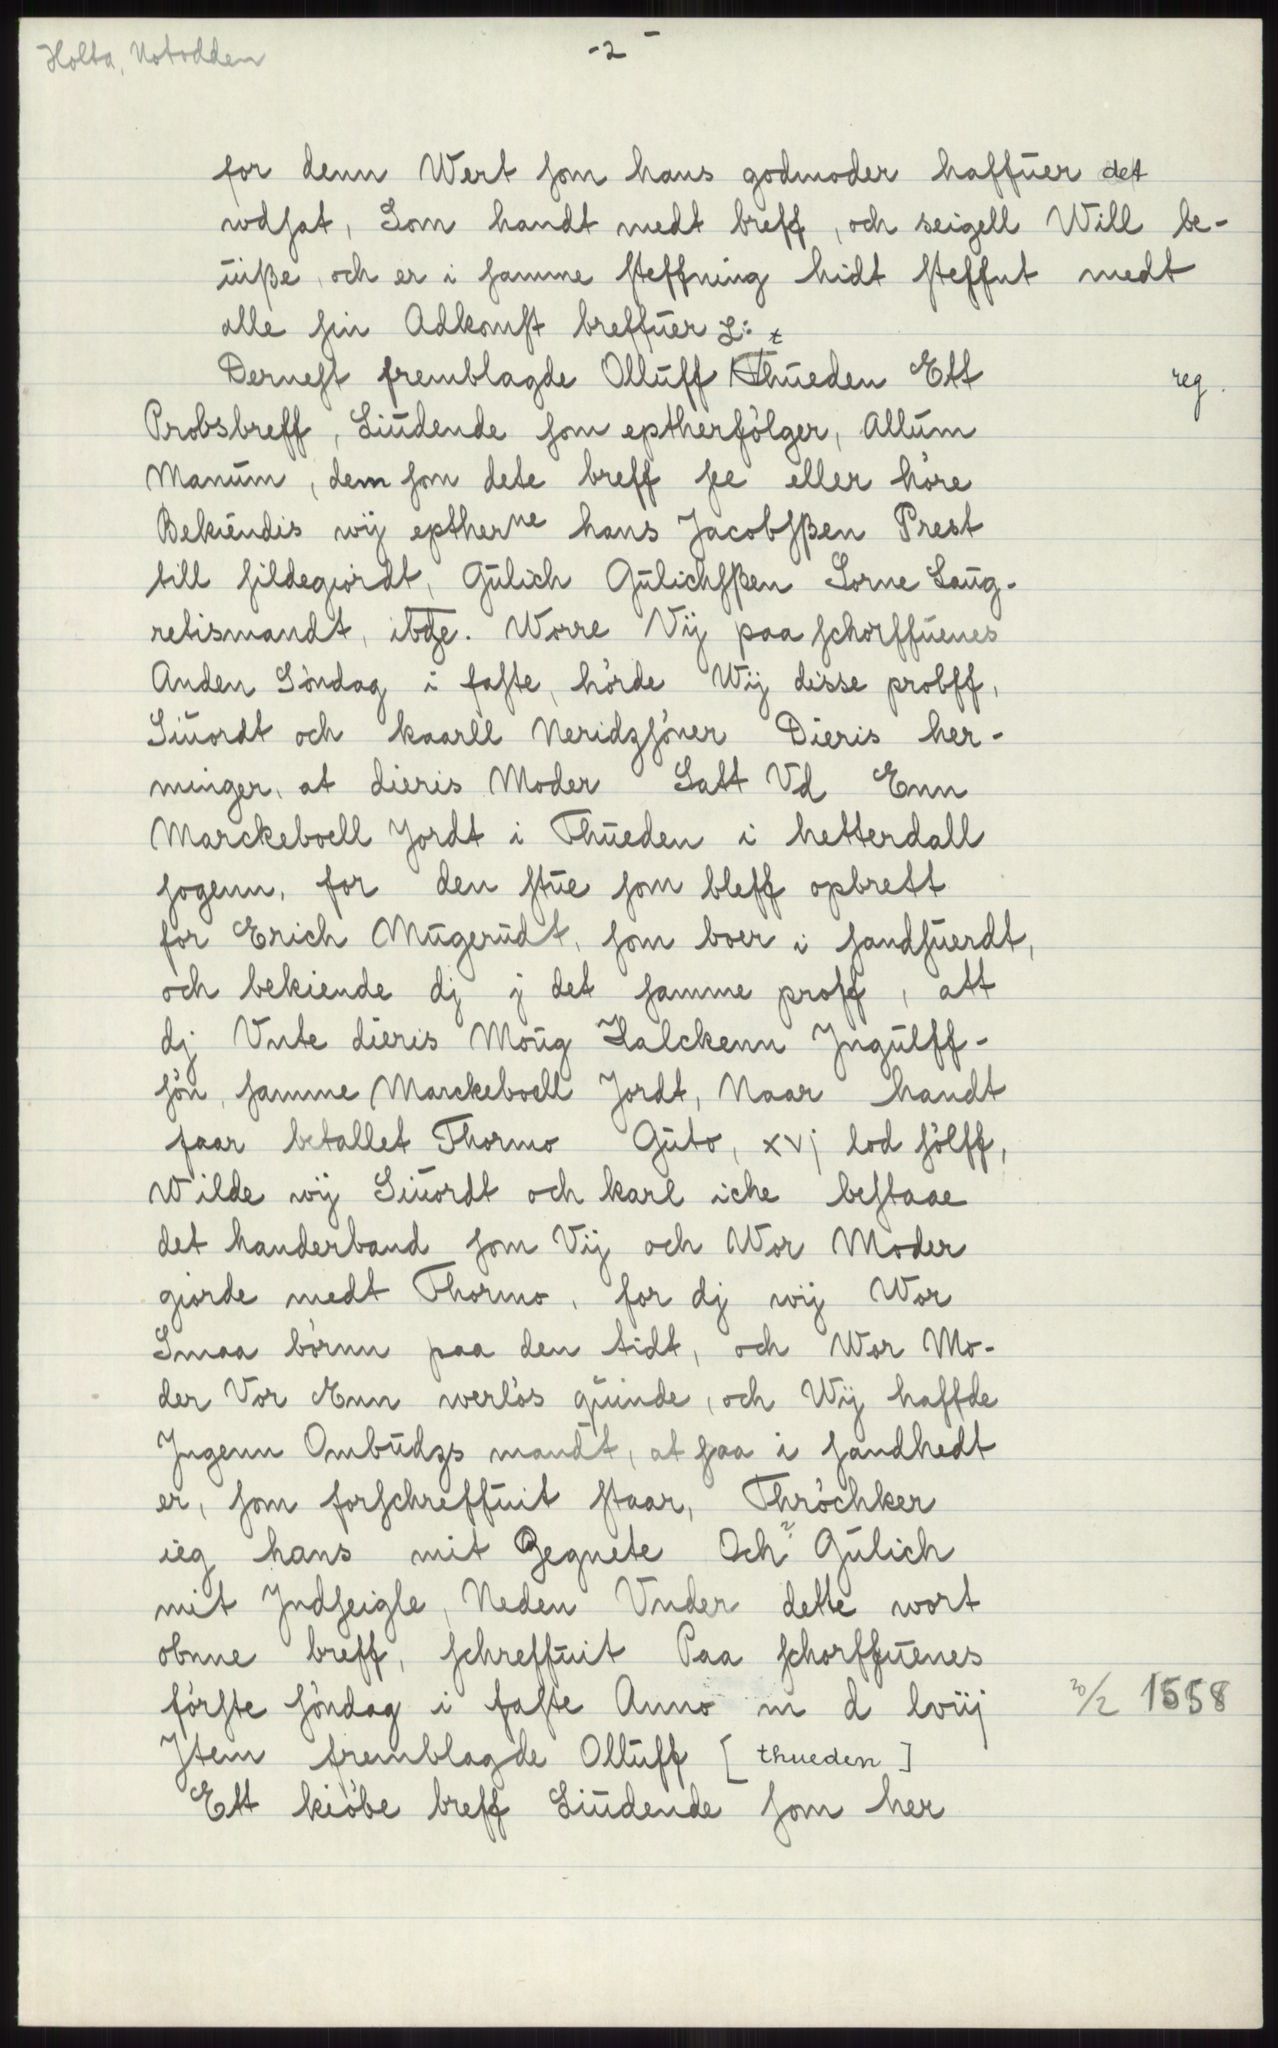 Holta, Notodden
-2-
for denn Wert som hans godmoder haffuer det
wdsat, Som handt medt breff, och seigell Will be-
uiße, och er i samme steffning hidt steffnt medt
alle sin Adkomst breffuer L: t
Dernest fremblagde Olluff Thueden Ett
reg.
Probsbreff, Liudende som eptherfölger, Allum
Manum, dem som dete breff see eller höre
Bekiendis wij epthernne hans Jacobsßen Prest
till sildegiordt, Gulich Gulichsßen Sorne Laug-
retismandt, ibde. Worre Vij paa schorffuenes
Anden Söndag i faste, hörde Wij disse probff,
Siuordt och kaarll Neridzsöner Dieris her-
minger, at dieris Moder Satt Vd Enn
Marckeboell Jordt i Thueden i hetterdall
sogenn, for den stue som bleff opbrett
for Erich Mugerudt, som boer i sandsuerdt,
och bekiende dj j det samme proff, att
dj Vnte dieris Moug Halckenn Jngulff-
sön, samme Marckeboell Jordt, Naar handt
faar betallet Thormo Guto, xvj lod sölff,
Wilde wij Siuordt och karl icke bestaae
det handerband som Vij och Wor Moder
giorde medt Thormo, for dj wij Wor
Smaa börnn paa den tidt, och Wor Mo-
der Vor Enn werlös quinde, och Wij haffde
Jngenn Ombudzs mandt, at saa i sandhedt
er, som forschreffuit staar, Thröchker
ieg hans mit Zegnete Och? Gulich
mit Jndseigle, Neden Vnder dette wort
obnne breff, schreffuit Paa schorffuenes
förste söndag i faste Anno m d lviij
20/2 1558
Jtem fremblagde Olluff [thueden]
Ett kiöbe breff Liudende som her